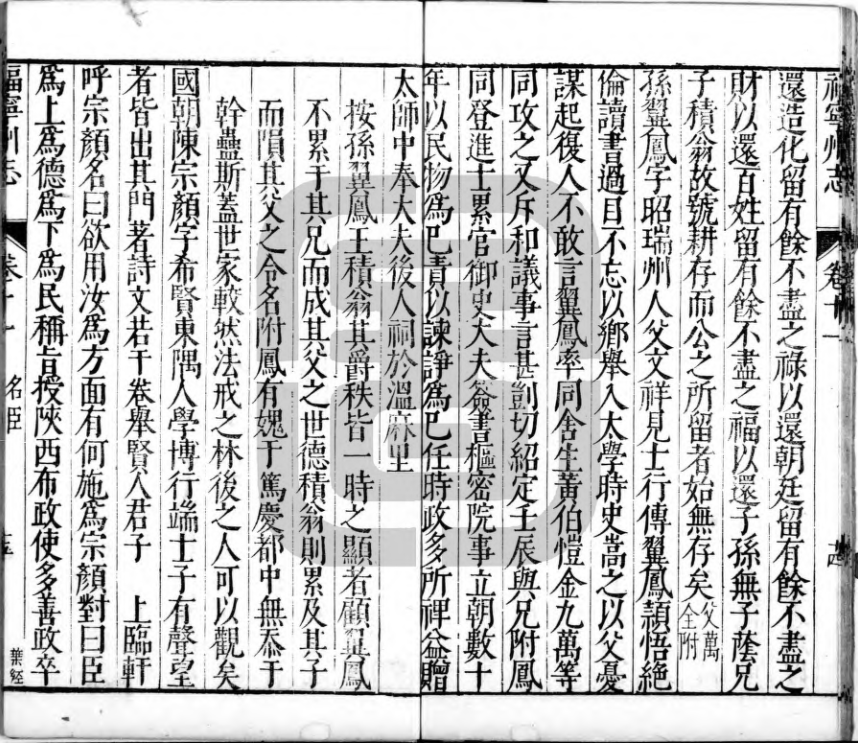 福寧州志 卷十一 十四
還造化留有餘不盡之祿以還朝廷留有餘不盡之
財以還百姓留有餘不盡之福以還子孫無子蔭兄
子積翁故號耕存而公之所留者始無存矣父萬全附
孫翼鳳字昭瑞州人父文祥見士行傳翼鳳頴悟絶
倫讀書過目不忘以鄉舉入太學時史嵩之以父憂
謀起復人不敢言翼鳳率同舍生黃伯愷金九萬等
同攻之又斥和議事言甚剴切紹定壬辰與兄附鳳
同登進士累官御史大夫簽書樞密院事立朝數十
年以民物爲巳責以諫諍爲巳任時政多所裨益贈
太師中奉大夫後人祠於溫麻里
按孫翼鳳王積翁其爵秩皆一時之顯者顧翼鳳
不累于其兄而成其父之世德積翁則累及其子
而隕其父之令名附鳳有媿于篤慶都中無忝于
幹蠱斯葢世家較然法戒之林後之人可以觀矣
國朝陳宗顏字希賢東隅人學博行端士子有聲望
者皆出其門著詩文若干卷舉賢人君子 上臨軒
呼宗顏名曰欲用汝爲方面有何施爲宗顏對曰臣
爲上爲德爲下爲民稱旨授陝西布政使多善政卒
福寧州志 卷十一 名臣 十五